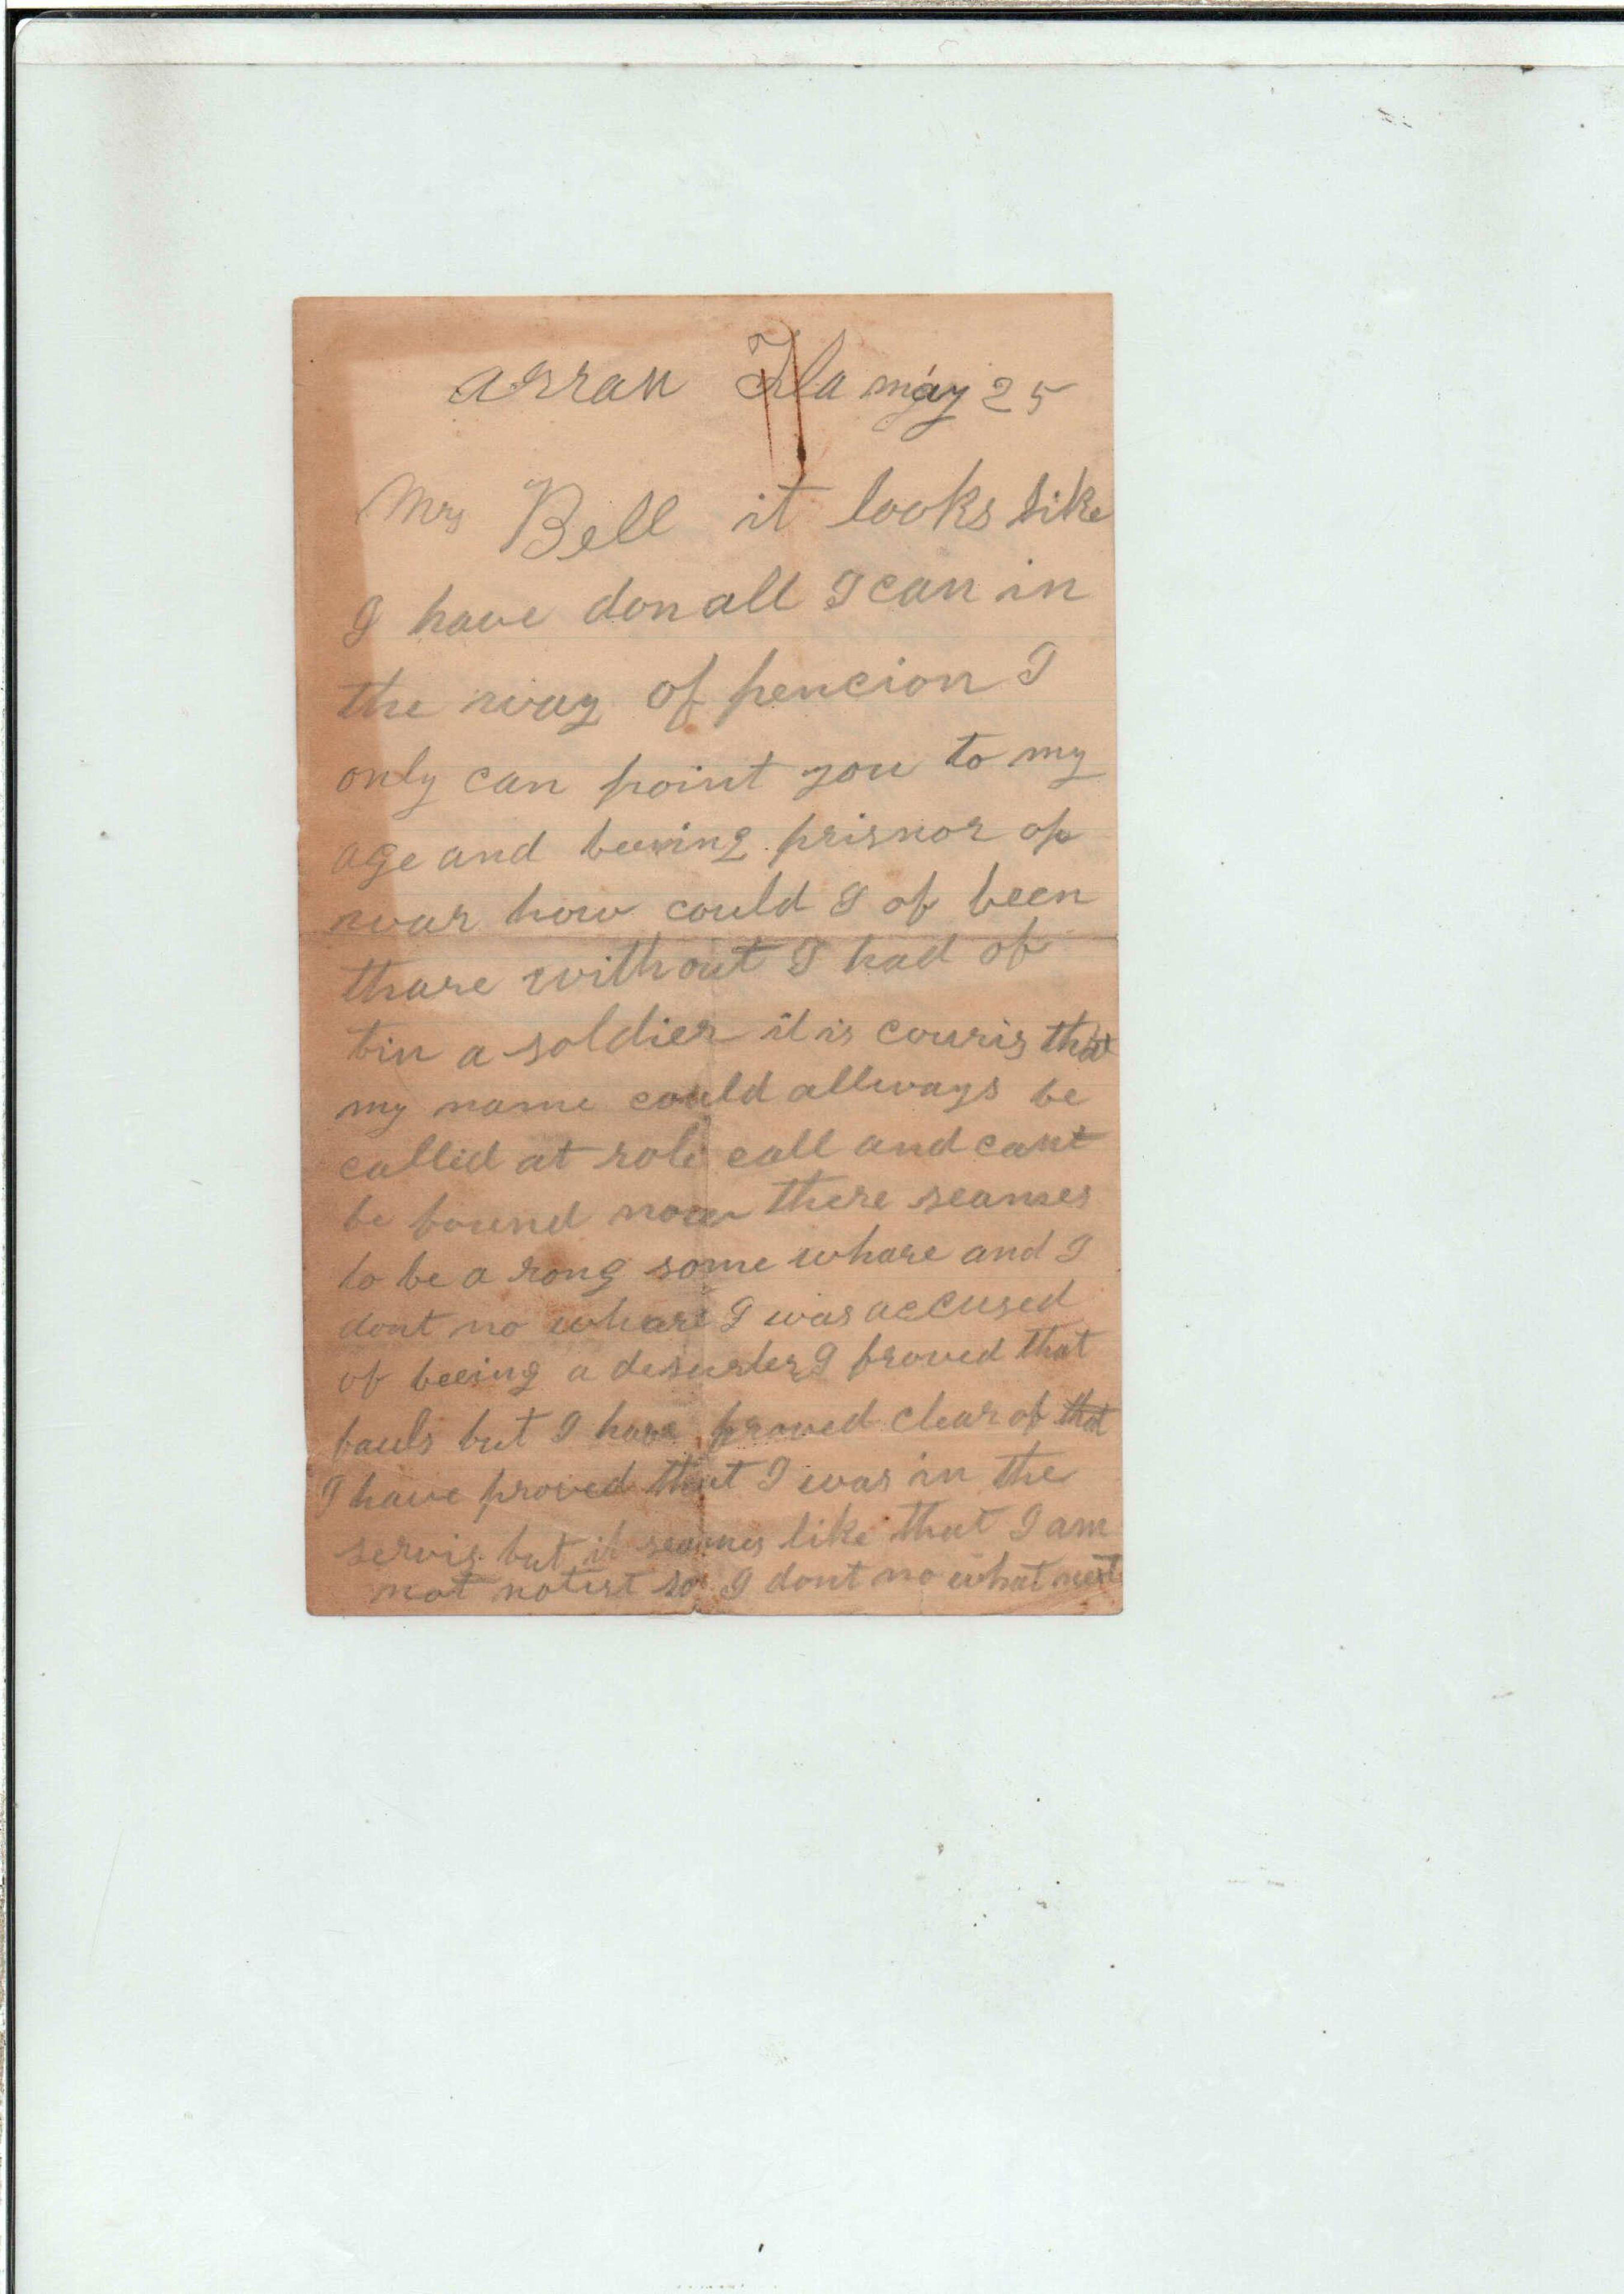 Arran Fla may 25
Mrs Bell it looks like
I have don all I can in
the way of pencion I
only can point you to my
age and beeing prisnor of
war how could I of been
thare without I had of
bin a soldier it is couris that
my name could allways be
called at role call and cant
be found now there seames
to be a rong some whare and I
dont no whare I was accused
of beeing a desurter I proved that
fauls but I have proved clear of that
I have proved that I was in the
servis but it seames like that I am
not notist so I dont no what next